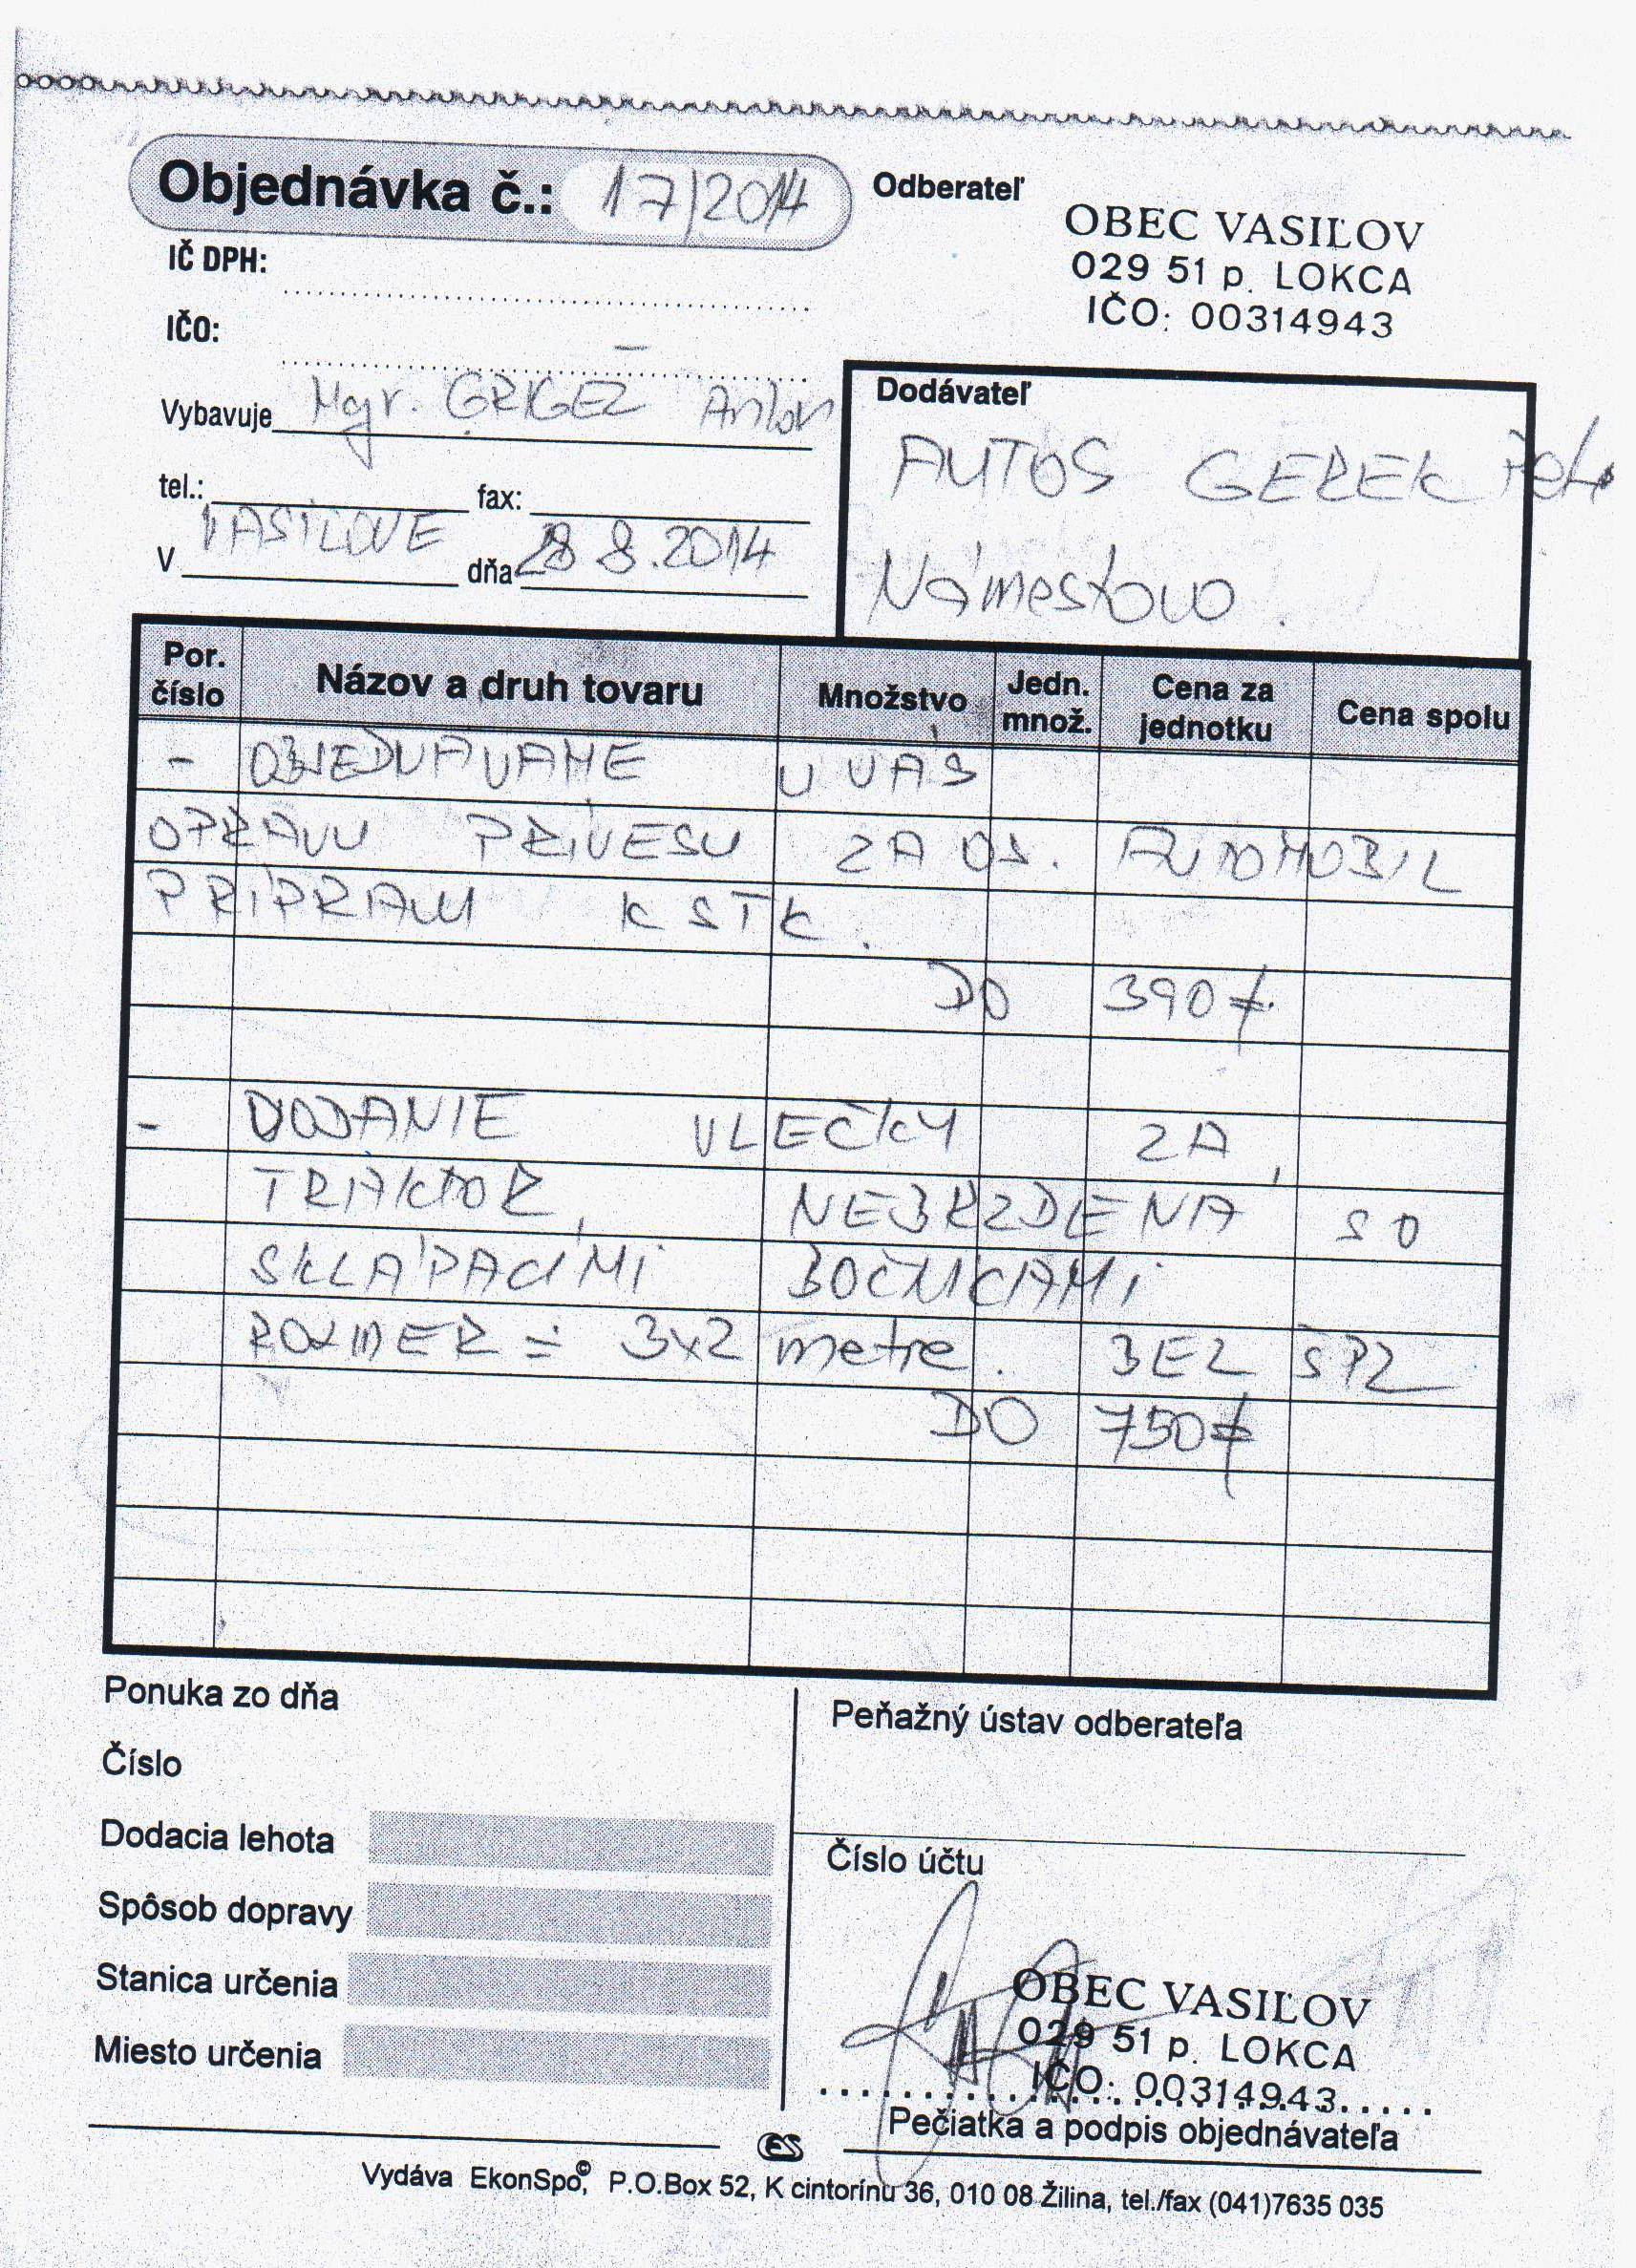 Objednávka č.: 17/2014
Odberateľ
OBEC VASIĽOV
029 51 p. LOKCA
IČO: 00314943
IČ DPH:
IČO: –
Vybavuje Mgr. GRIGEĽ Anton
tel.: fax:
V VASIĽOVE dňa 28 8.2014
Dodávateľ
AUTOS GEREK
Námestovo.
Por. číslo Názov a druh tovaru Množstvo Jedn. množ. Cena za jednotku Cena spolu
- OBJEDNÁVAME U VÁS
OPRAVU PRÍVESU ZA OS. AUTOMOBIL
PRÍPRAVU K STK.
DO 390
- DODANIE VLEČKY ZA
TRAKTOR, NEBRZDENÁ SO
SKLÁPACÍMI BOČNICAMI
ROZMER = 3x2 metre. BEZ ŠPZ
DO 750
Ponuka zo dňa
Číslo
Dodacia lehota
Spôsob dopravy
Stanica určenia
Miesto určenia
Peňažný ústav odberateľa
Číslo účtu
OBEC VASIĽOV
029 51 p. LOKCA
IČO: 00314943
Pečiatka a podpis objednávateľa
ES
Vydáva EkonSpo©, P.O.Box 52, K cintorínu 36, 010 08 Žilina, tel./fax (041)7635 035